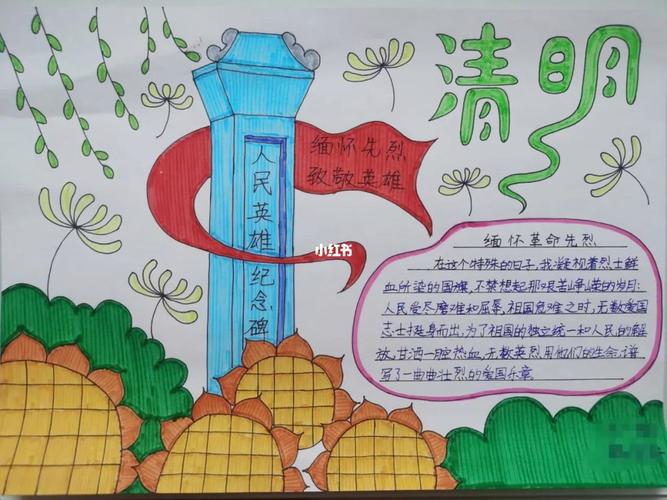 清明
缅怀先烈
致敬英雄
人民英雄纪念碑
小红书
缅怀革命先烈
在这个特殊的日子,我凝视着烈士鲜
血所染的国旗,不禁想起那艰苦峥嵘的岁月:
人民受尽磨难和屈辱,祖国危难之时,无数爱国
志士挺身而出,为了祖国的独立统一和人民的解
放,甘洒一腔热血,无数英烈用他们的生命,谱
写了一曲曲壮烈的爱国乐章。